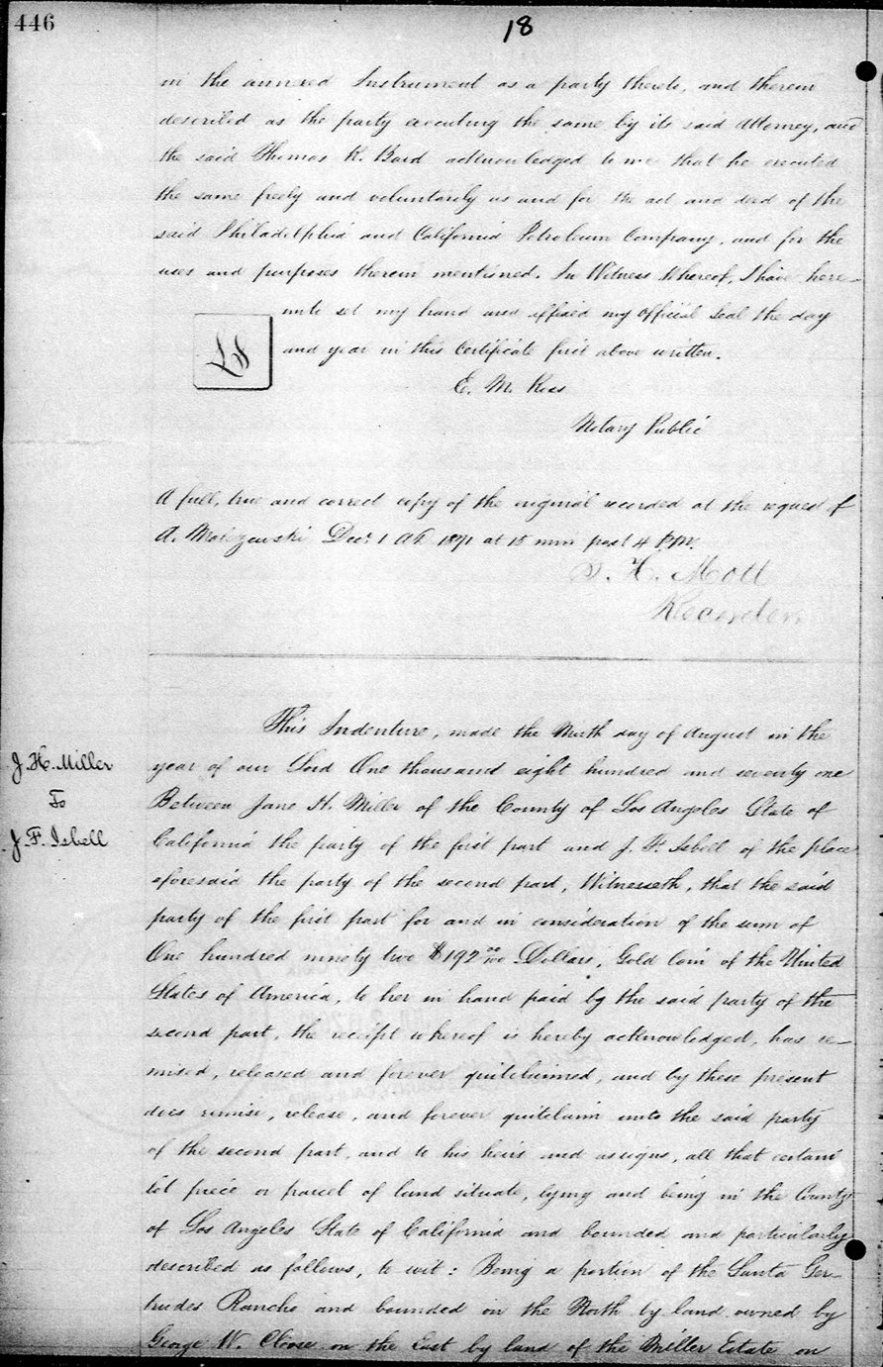 446
18
in the annexed Instrument as a party thereto, and therein
described as the party executing the same by its said Attorney, and
the said Thomas R. Bard acknowledged to me that he executed
the same freely and voluntarily as and for the act and deed of the
said Philadelphia and California Petroleum Company, and for the
uses and purposes therein mentioned. In Witness Whereof, I have here-
unto set my hand and affixed my Official Seal the day
and year in this Certificate first above written.
LS
E. M. Ross
Notary Public
A full, true and correct copy of the original recorded at the request of
A. Dec. 1 AD 1871 at 15 min past 4 P.M.
J. H. Mott
Recorder
J. H. Miller
To
J. F. Isbell
This Indenture, made the Ninth day of August in the
year of our Lord One thousand eight hundred and seventy one
Between Jane H. Miller of the County of Los Angeles State of
California the party of the first part and J. F. Isbell of the place
aforesaid the party of the second part, Witnesseth, that the said
party of the first part for and in consideration of the sum of
One hundred ninety two $192 00/100 Dollars, Gold Coin of the United
States of America, to her in hand paid by the said party of the
second part, the receipt whereof is hereby acknowledged, has re-
mised, released and forever quitclaimed, and by these present
does remise, release, and forever quitclaim unto the said party
of the second part, and to his heirs and assigns, all that certain
lot piece or parcel of land situate, lying and being in the County
of Los Angeles State of California and bounded and particularly
described as follows, to wit: Being a portion of the Santa Ger-
trudes Rancho and bounded on the North by land owned by
George W. on the East by land of the Miller Estate on